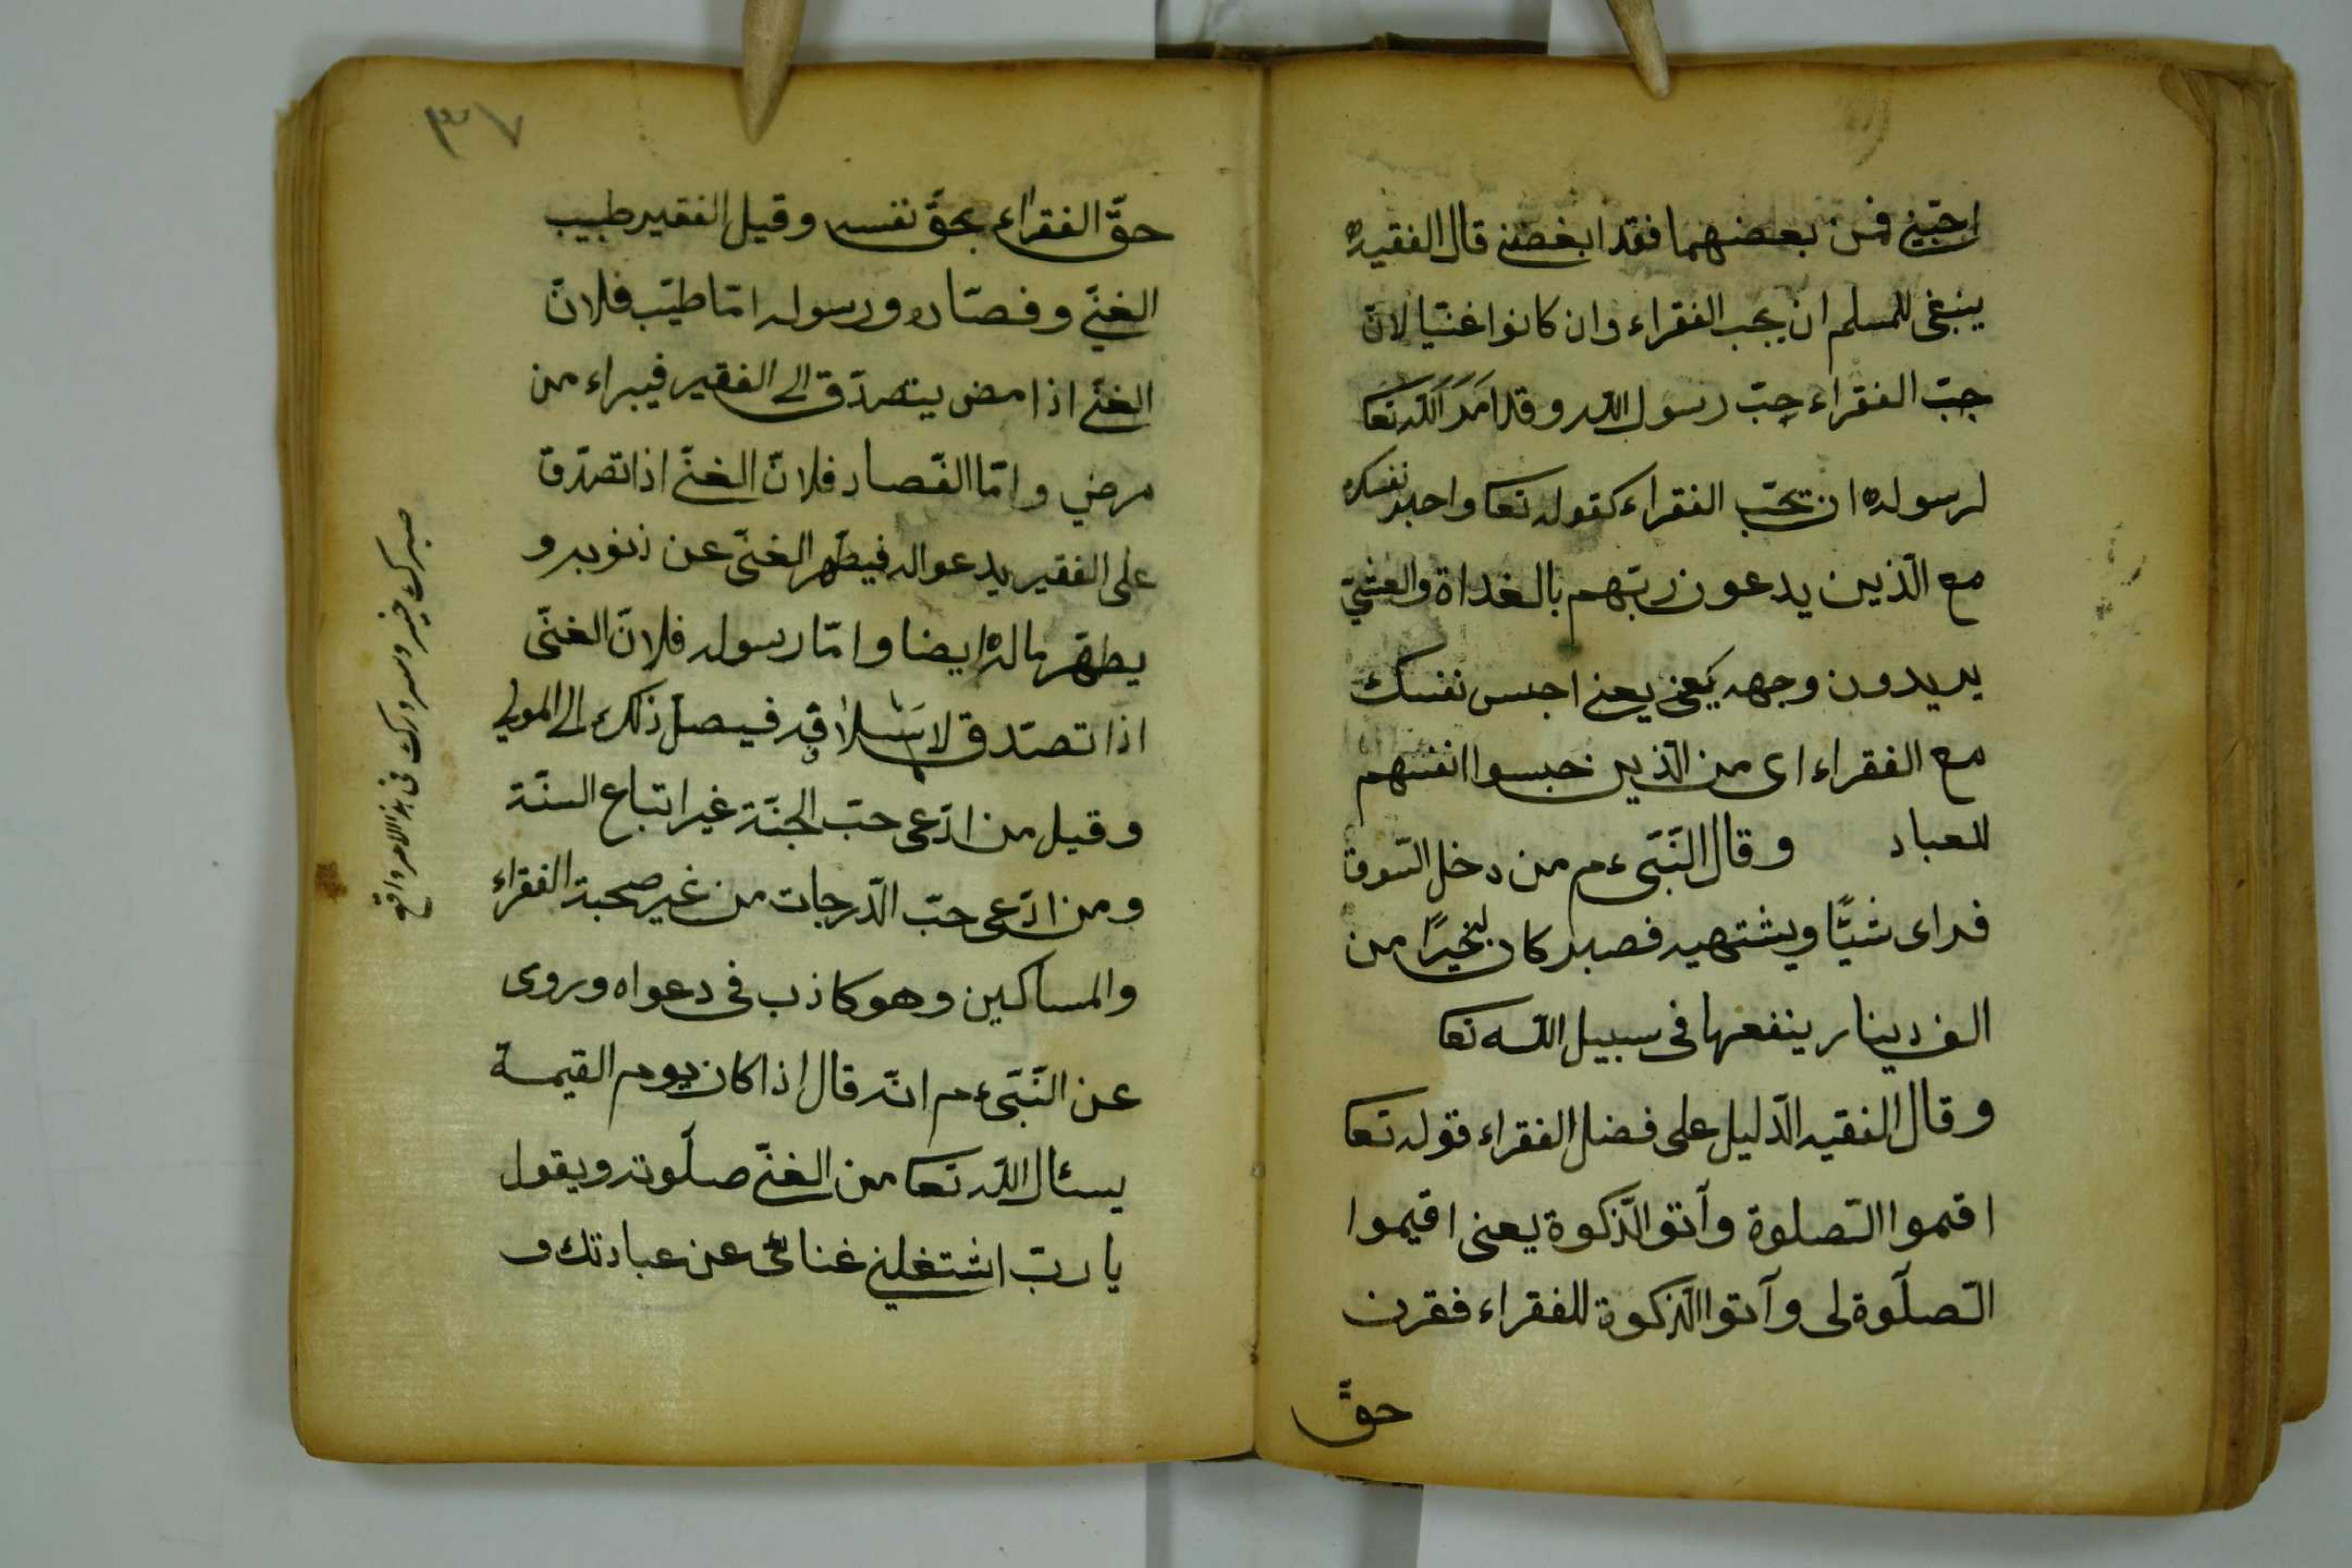 احبّني فمن بعضهما فقد ابغضني قال الفقيه
ينبغى للمسلم ان يحب الفقراء وان كانوا غنيّا لانّ
حبّ الفقراء حبّ رسول اللّه وقد امَرَ اللّه تعا
لرسوله ان تحبّ الفقراء كقوله تعا واصبر نفسك
مع الّذين يدعون ربّهم بالغداة والعشيّ
يريدون وجهه يعنى احبس نفسك
مع الفقراء اى من الّذين حبسوا انفسهم
للعباد وقال النّبىّ ءم من دخل السّوق
فراى شيًّا ويشتهيه فصبر كان خيرًا من
الف دينار ينفعها فى سبيل اللّه تعا
وقال الفقيه الدّليل على فضل الفقراء قوله تعا
اقموا الصّلوة وآتوا الزّكوة يعنى اقيموا
الصّلوة لى وآتوا الزّكوة للفقراء فقرن
حقّ
٣٧
حقّ الفقراء بحقّ نفسه وقيل الفقير طبيب
الغنّي وقصّاره ورسوله امّا طبيب فلانّ
الغنّي اذا مرض يتصدّق الى الفقير فيبراء من
مرضي وامّا القصار فلانّ الغنّي اذا تصدّق
على الفقير يدعو اله فيطهر الغنّي عن ذنوبه و
يطهّر ماله ايضا وامّا رسوله فلانّ الغنّى
اذا تصدّق فيصل ذلك الى المولى
وقيل من ادّعى حبّ الجنّة غير اتباع السنّة
ومن ادّعى حبّ الدّرجات من غير صحبة الفقراء
والمساكين وهو كاذب فى دعواه وروى
عن النّبىّ ءم انّه قال اذا كان يوم القيمة
يسئال اللّه تعا من الغنّي صلوته ويقول
يا ربّ اشتغلني غنائى عن عبادتك و